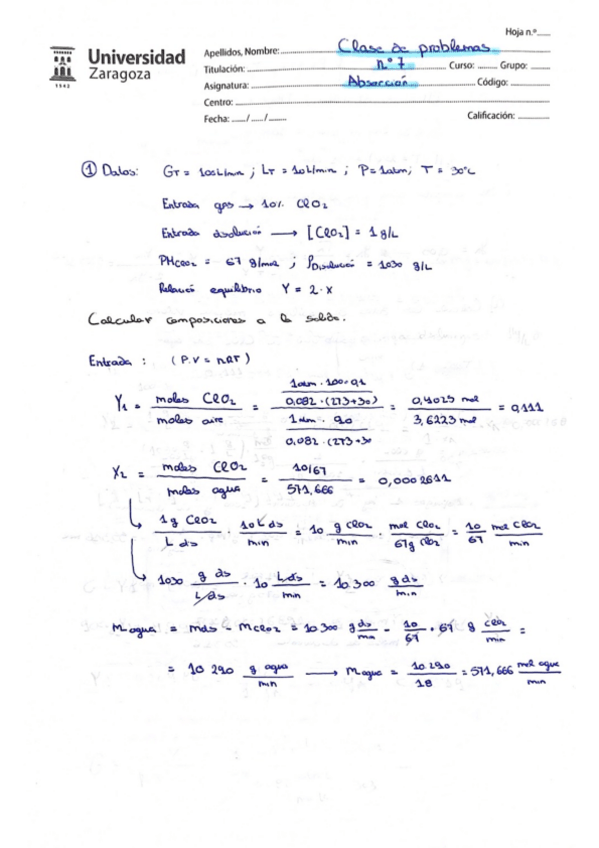 Hoja n.º
Universidad
Zaragoza
1542
Apellidos, Nombre: Clase de problemas
Titulación: nº 7 Curso: Grupo:
Asignatura: Absorción Código:
Centro:
Fecha: / / Calificación:
① Datos: GT = 100L/min ; LT = 10L/min ; P = 1atm ; T = 30°C
Entrada gas → 10% ClO2
Entrada disolución → [ClO2] = 1 g/L
PMClO2 = 67 g/mol ; ρDisolución = 1030 g/L
Relación equilibrio Y = 2·X
Calcular composiciones a la salida.
Entrada : (P.V = nRT)
Y1 = moles ClO2 / moles aire = (1atm · 100·0,1 / 0,082 · (273+30)) / (1atm · 90 / 0,082 · (273+30) = 0,4025 mol / 3,6223 mol = 0,111
X2 = moles ClO2 / moles agua = 10/67 / 571,666 = 0,0002611
1g ClO2 / L ds · 10 L ds / min = 10 g ClO2 / min · mol ClO2 / 67g ClO2 = 10/67 mol ClO2 / min
1030 g ds / L ds · 10 L ds / min = 10.300 g ds / min
m agua = mds - mClO2 = 10300 g ds / min - 10/67 · 67 g ClO2 / min =
= 10 290 g agua / min → M agua = 10.290 / 18 = 571,666 mol agua / min